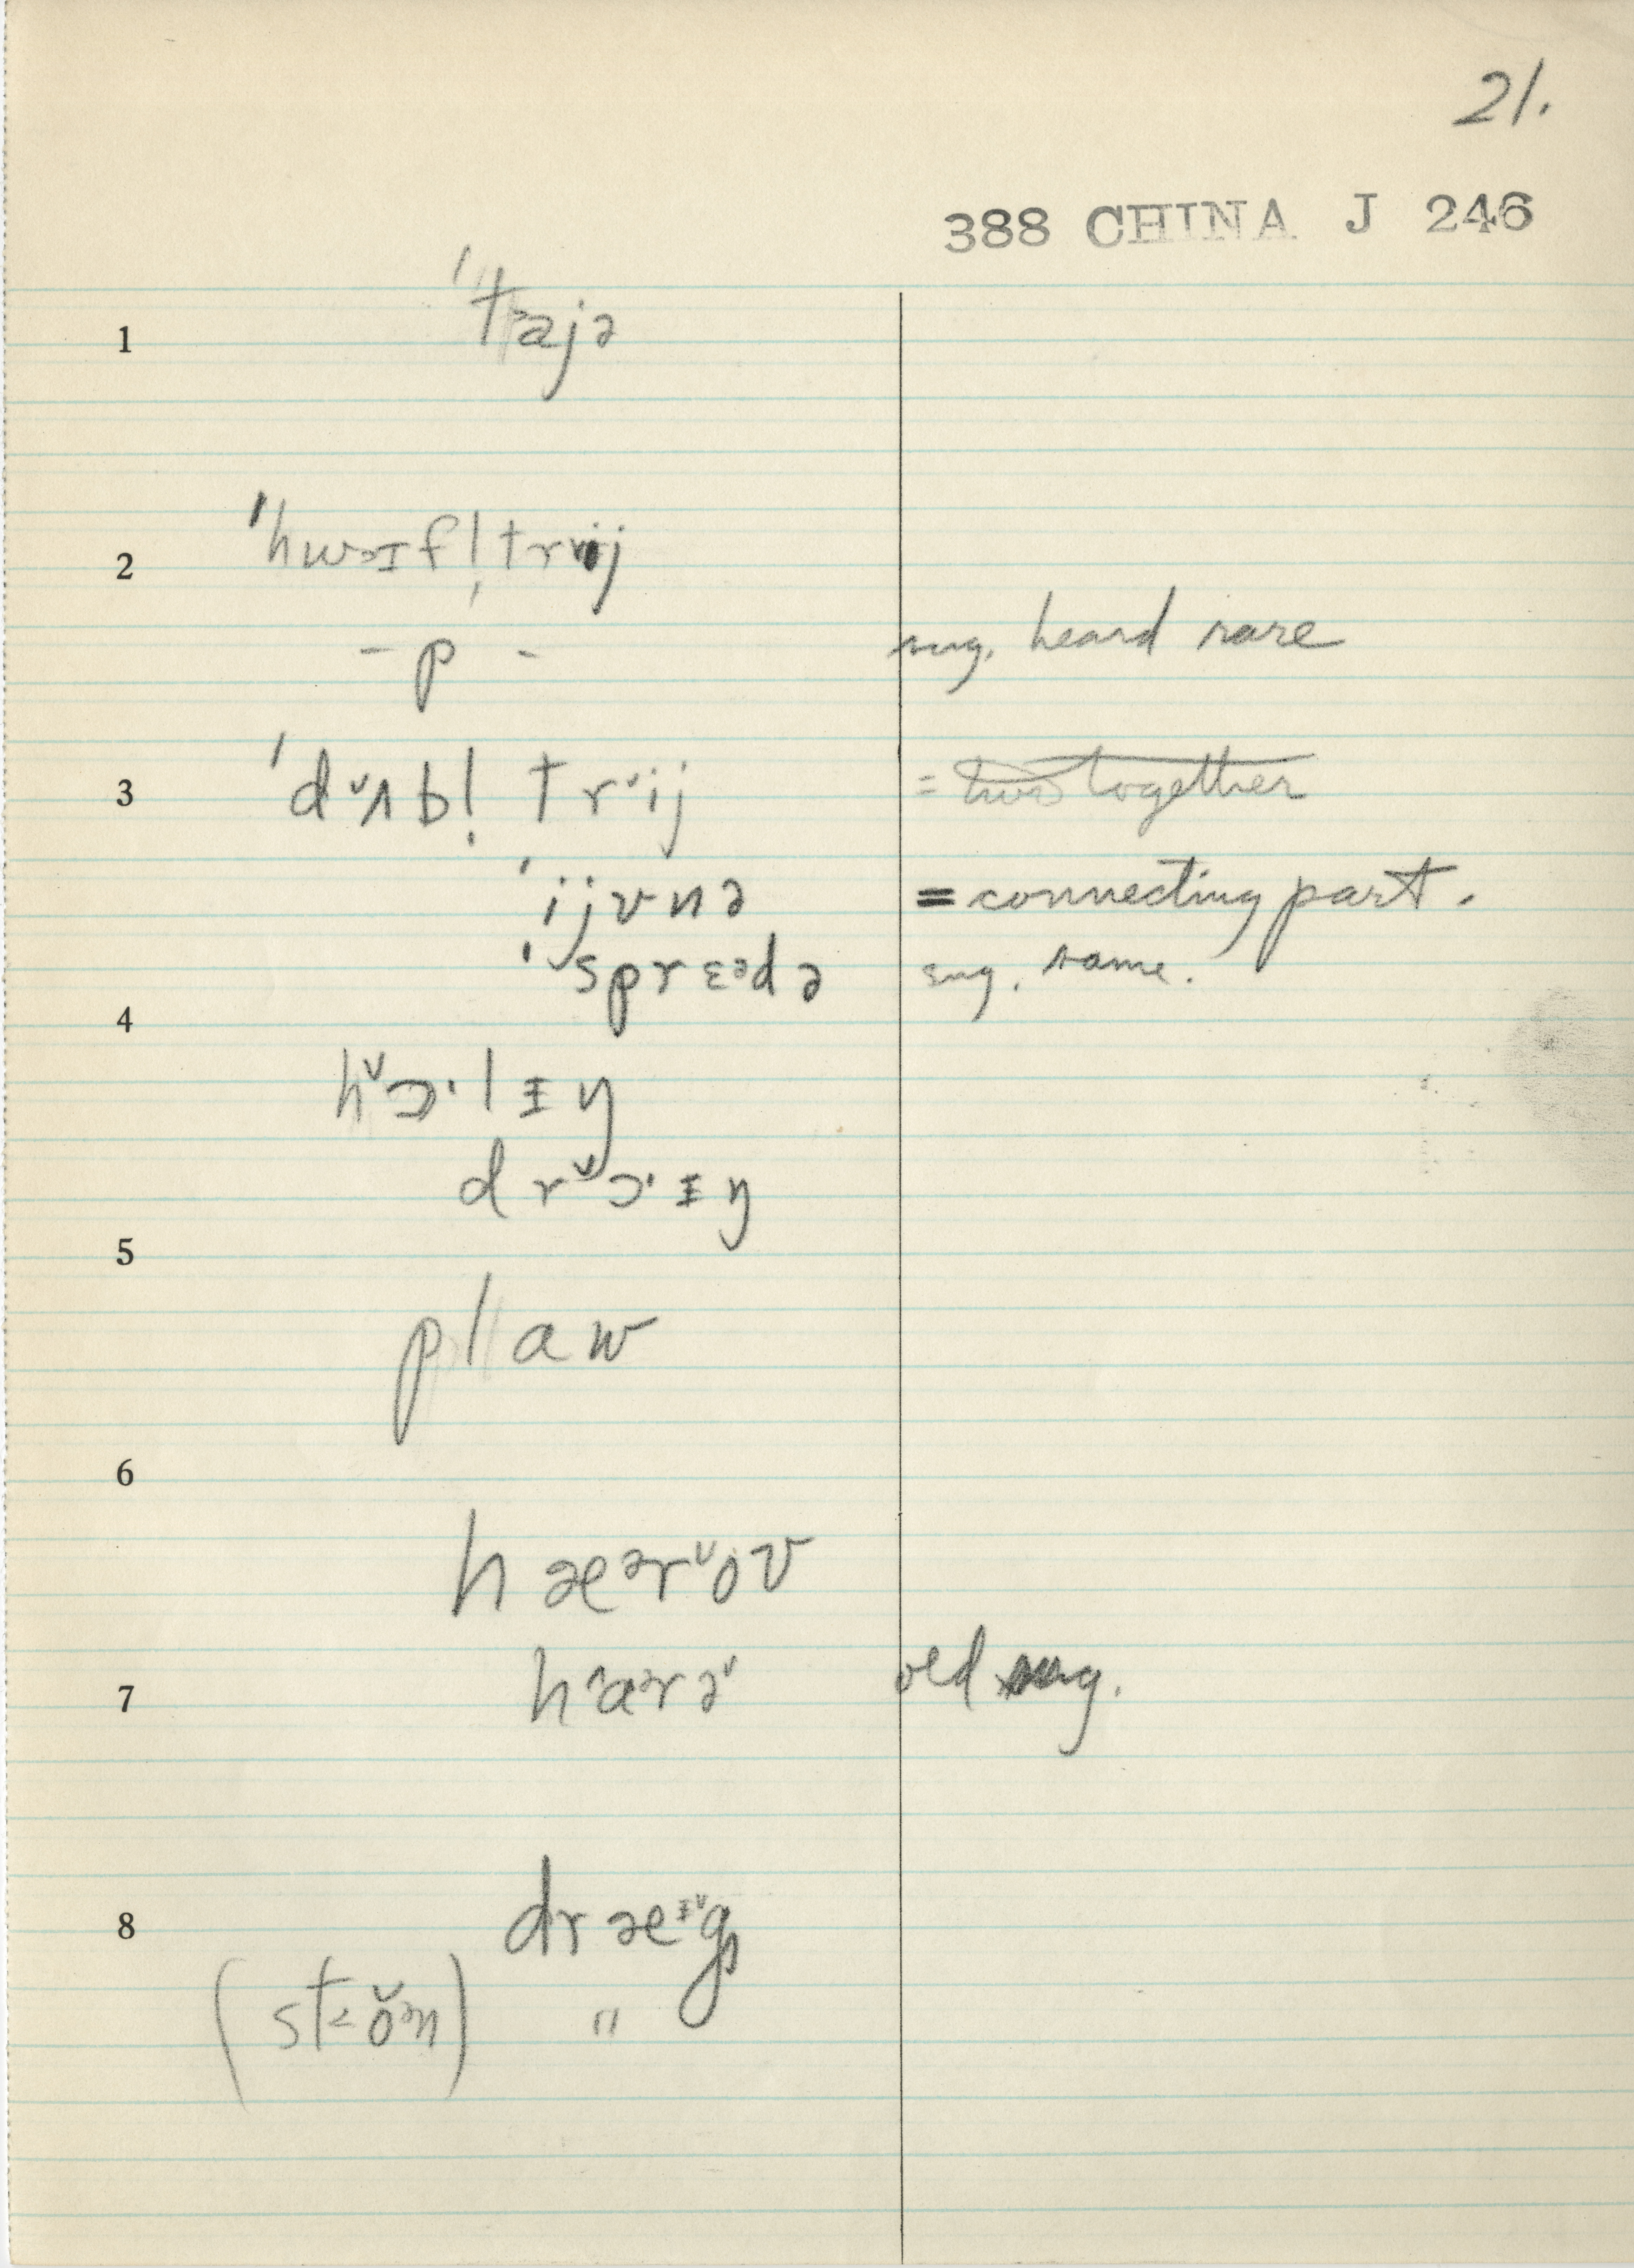 21.
388 CHINA J 246
1 ˈtˢajə
2 ˈhwɔɪf!̩trij
- p - sug. heard rare
3 ˈdᵛʌbl̩ trᵛij = two together
ˈijvnə = connecting part.
ˈsprɛᵊdə sug. same.
4
hᵛɔ·lɪŋ
drᵛɔ·ɪŋ
5
plaw
6
hæᵊrᵛov
7 hᶺaᵊrəᵛ old sug.
8 dræᶦᵛg
(st˂ŏᵊn) "